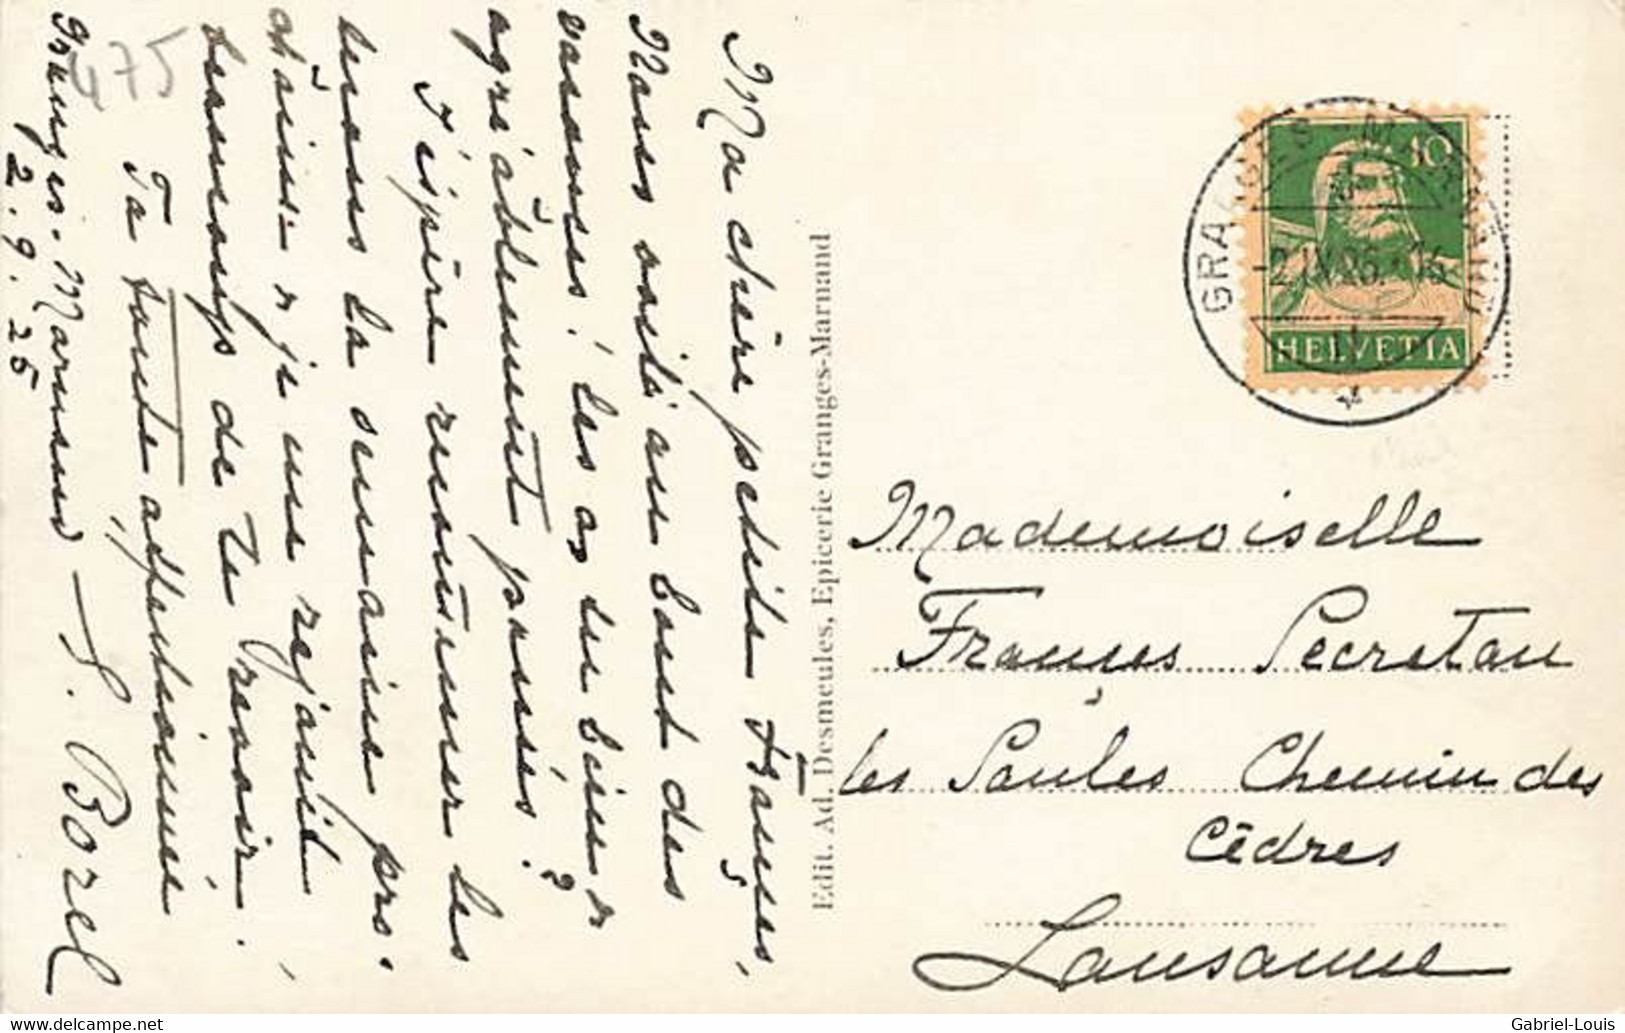 Ma chère petite Françes,
Nous voilà au bout des
vacances! les as tu bien
agréablement passés?
J'éspère rencontrer les
tenous la semaine pro-
chaine & je me réjouis
beaucoup de te revoir.
Ta tante affectionnée
S. Borel
Granges-Marnand
2.9.25
475
Edit. Ad. Desmeules, Epicerie Granges-Marnand
GRANGES-MARNAND
-2.IX.26.-16
10
HELVETIA
Mademoiselle
Françes Secretan
les Saules Chemin des
Cèdres
Lausanne
Gabriel-Louis